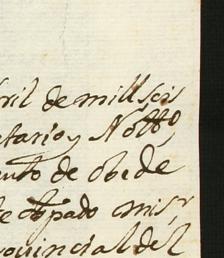 ril de mill seis
tario y Notto
ento de obede
obpado mis
rouincial del